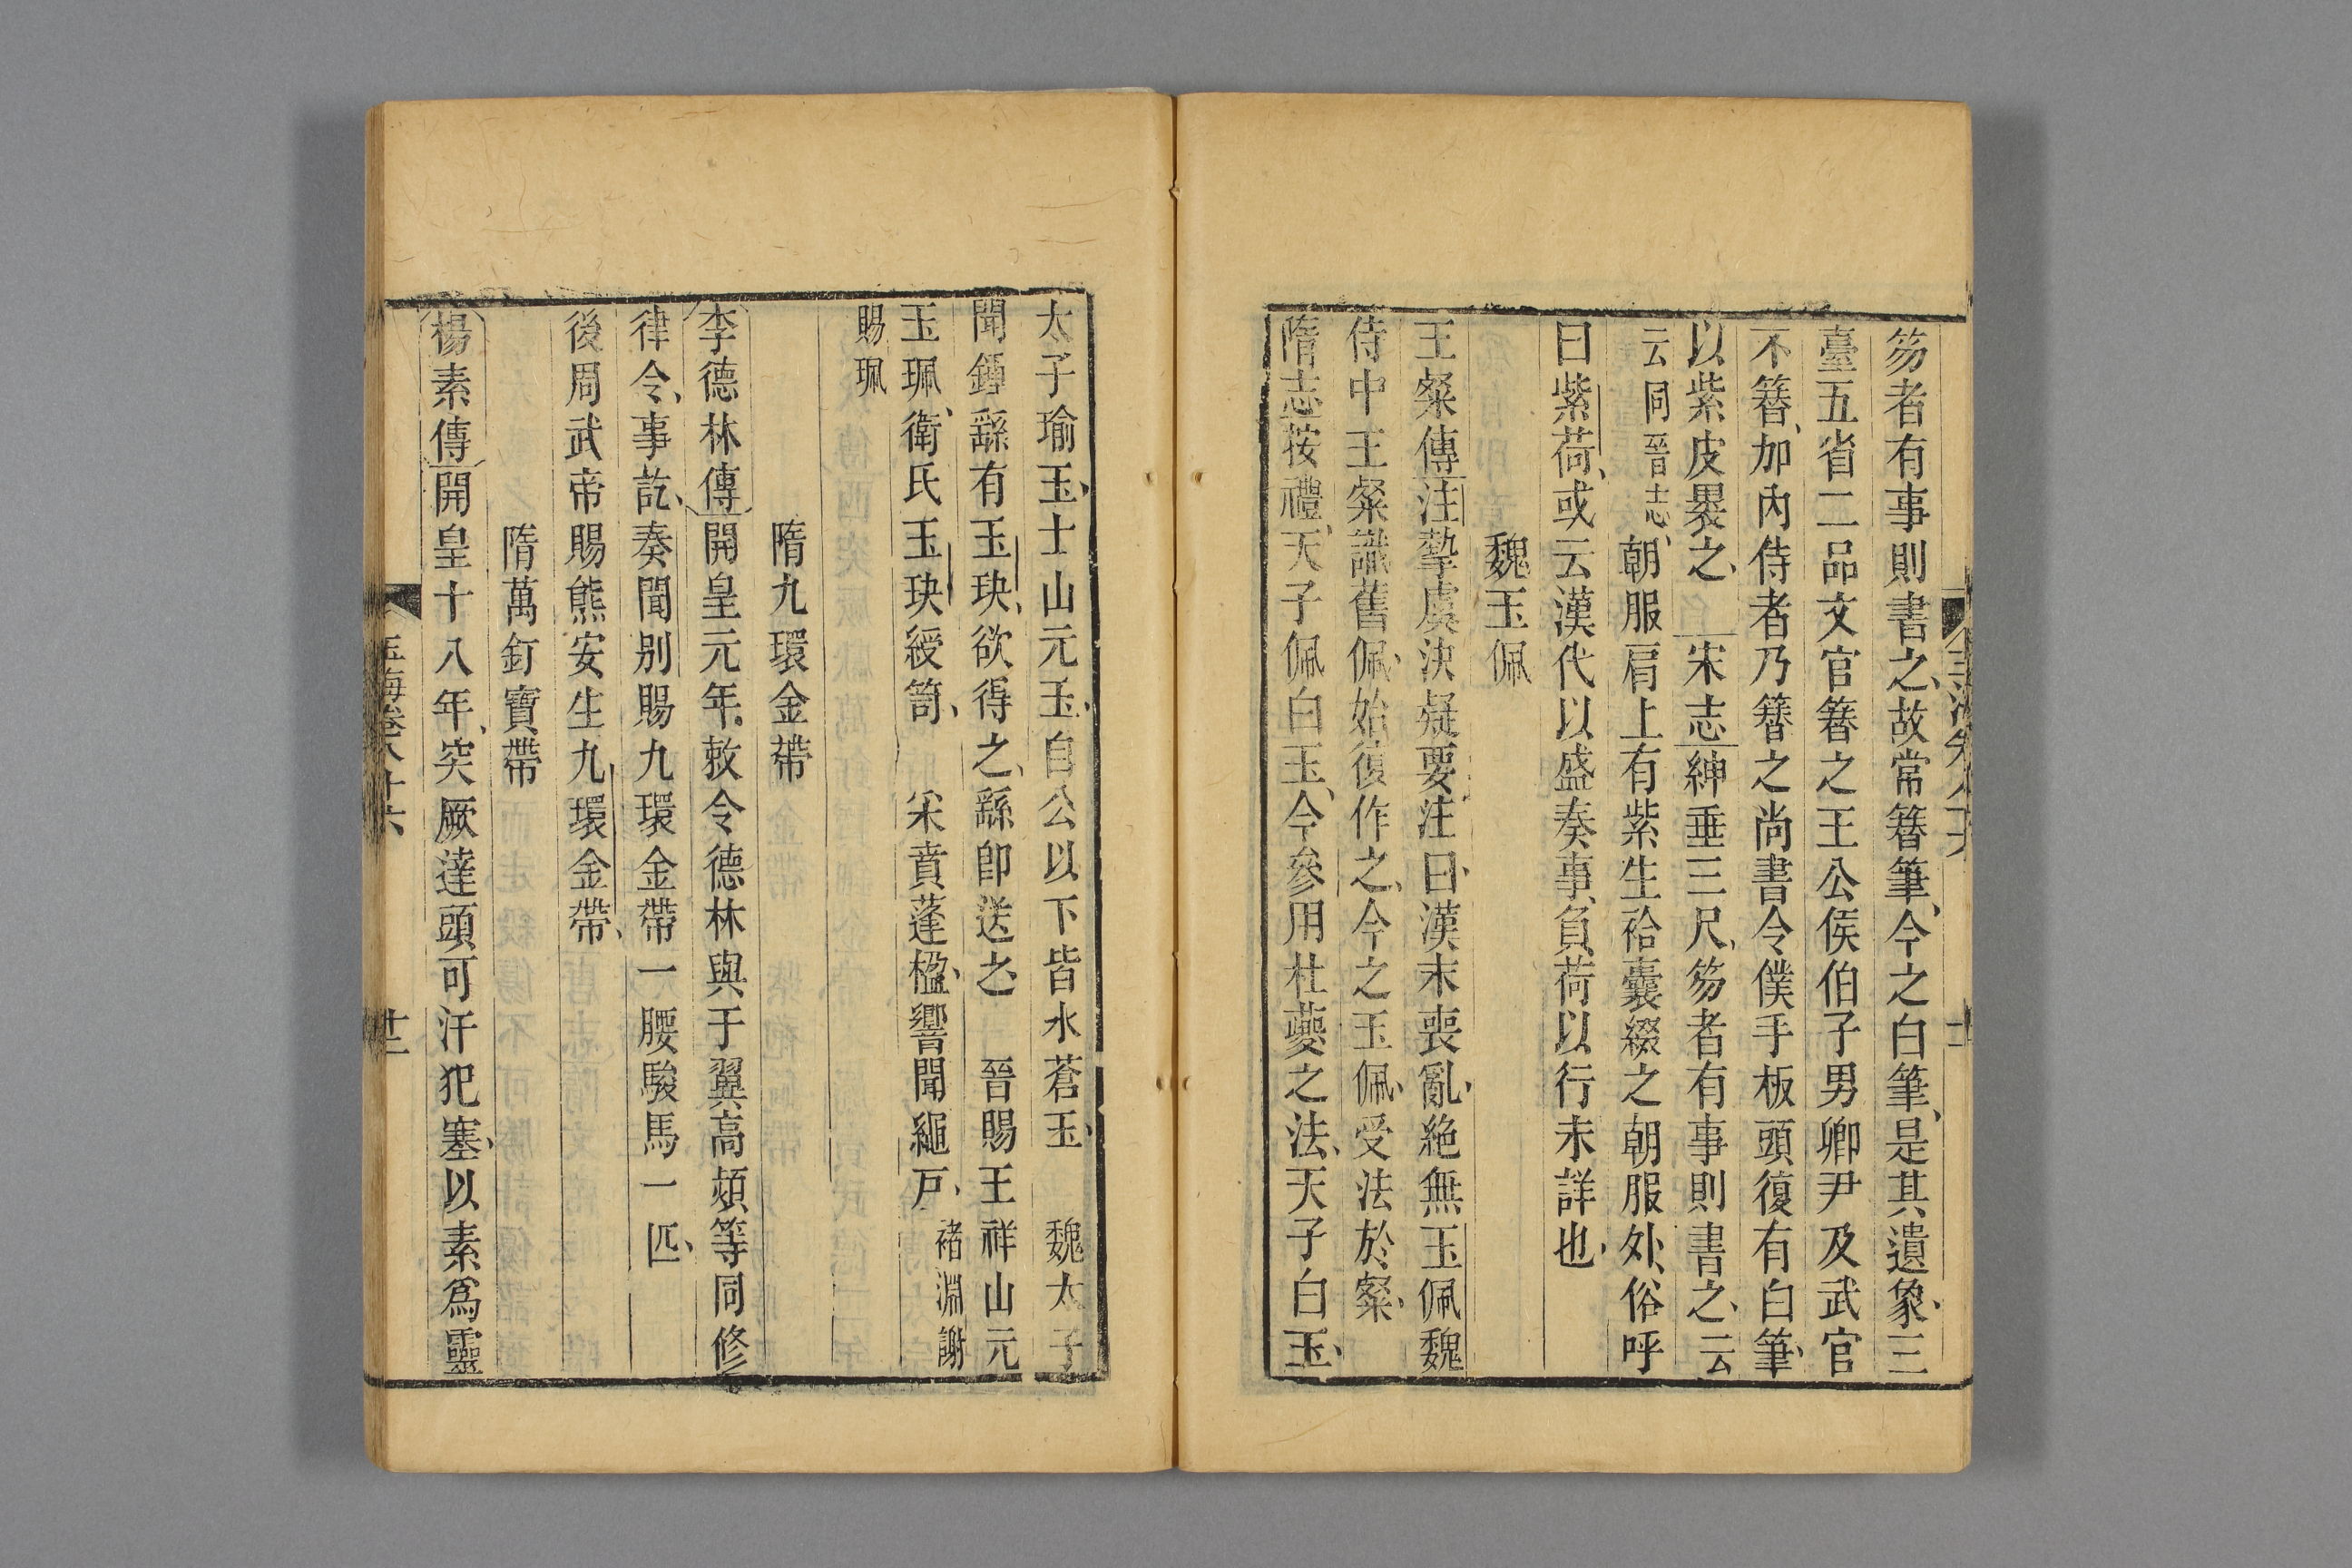 笏者有事則書之故常簪筆今之白筆是其遺象三
臺五省二品文官簪之王公侯伯子男卿尹及武官
不簪加內侍者乃簪之尚書令僕手板頭復有白筆
以紫皮裹之宋志紳垂三尺笏者有事則書之云
云同晉志朝服肩上有紫生袷囊綴之朝服外俗呼
曰紫荷或云漢代以盛奏事負荷以行未詳也
魏玉佩
王粲傳注摯虞決疑要注曰漢末喪亂絶無玉佩魏
侍中王粲識舊佩始復作之今之玉佩受法於粲
隋志按禮天子佩白玉今參用杜夔之法天子白玉
太子瑜玉士山元玉自公以下皆水蒼玉 魏太子
聞鍾繇有玉玦欲得之繇卽送之 晉賜王祥山元
玉珮衛氏玉玦綬笥 宋賁蓬楹響聞繩戸褚淵謝
賜珮
隋九環金帶
李德林傳開皇元年敕令德林與于翼高熲等同修
律令事訖奏聞別賜九環金帶一腰駿馬一匹
後周武帝賜熊安生九環金帶
隋萬釘寶帶
楊素傳開皇十八年突厥達頭可汗犯塞以素爲靈
玉海卷八十六